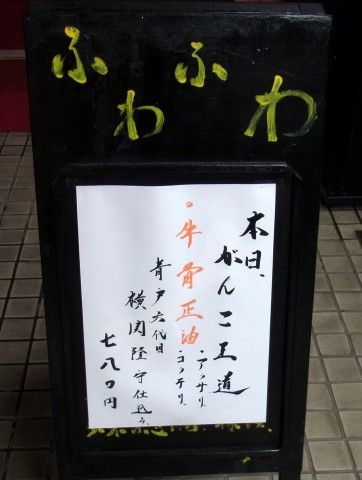 ふわふわ
本日、がんこ王道
・牛骨正油
・アッサリ
・コッテリ
青戸六代目
横関隆守仕込み
七八〇円